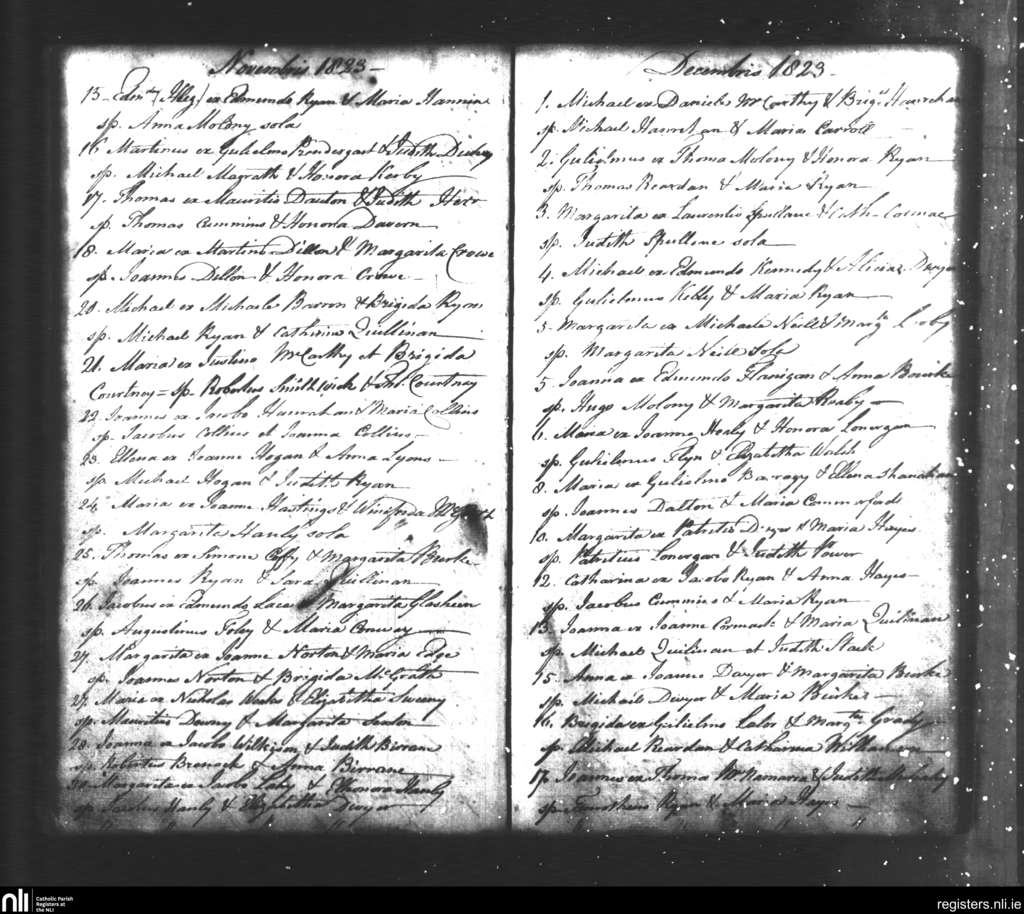 Novembris 1823 -
15 - Edmd [Illeg.] ex Edmundo Ryan & Maria Hannin
sp. Anna Molony sola
16 Martinus ex Gulielmo Prindergast & Judith
sp. Michael Magrath & Honora Kerby
17. Thomas ex Mauritio & Judith Herr
sp. Thomas Cummins & Honora Davern
18. Maria ex Martino Dillon & Margarita Crowe
sp. Joannes Dillon & Honora Crowe -
20. Michael ex Michaele Barron & Brigida Ryan
sp. Michael Ryan & Catharina Quillinan
21. Maria ex Justino McCarthy et Brigida
Courtnay = sp. Robertus Smithwick & Courtnay
22. Joannes ex Jacobo Hanrahan & Maria Collins
sp. Jacobus Collins et Joanna Collins -
23. Ellena ex Joanne Hogan & Anna Lyons -
sp. Michael Hogan & Judith Ryan
24. Maria ex Joanne Hastings & Winifreda
sp. Margarita Hanly sola
25. Thomas ex Simone Coffy & Margarita Burke
sp. Joannes Ryan & Sara Quillinan
26. Jacobus ex Edmundo & Margarita Glasheen
sp. Augustinus Foley & Maria Conway
27. Margarita ex Joanne Norton & Maria Edge
sp. Joannes Norton & Brigida McGrath
27. Maria ex Nicholao Weeks & Elizabetha Sweny
sp. Mauritius Downy & Margarita
28. Joanna ex Jacobo Wilkison & Judith Birrane
sp. Robertus Brenock & Anna Birrane
30. Margarita ex Jacobo Lahy & Elhonora Hanly
sp. Hanly & Elizabetha Dwyer
Decembris 1823 -
1. Michael ex Daniele McCarthy & Brigd Hanrahan
sp. Michael Hanrahan & Maria Carroll
2. Gulielmus ex Thoma Molony & Honora Ryan
sp. Thomas Reardan & Maria Ryan
3. Margarita ex Laurentio Spullane & Cath. Cormac
sp. Judith Spullane sola
4. Michael ex Edmundo Kennedy & Alicia Dwyer
sp. Gulielmus Kelly & Maria Ryan
5. Margarita ex Michaele Neill & Margta
sp. Margarita Neill Sola
5. Joanna ex Edmundo Flanigan & Anna Bourke
sp. Hugo Molony & Margarita
6. Maria ex Joanne Healy & Honora Lonergan
sp. Gulielmus Flyn & Elizabetha Walsh
8. Maria ex Gulielmo Barragy & Ellena Shanahan
sp. Joannes Dalton & Maria Commerford
10. Margarita ex Patritio Dwyer & Maria Hayes
sp. Patritius Lonergan & Judith Power
12. Catharina ex Jacobo Ryan & Anna Hayes -
sp. Jacobus Cummins & Maria Ryan
13. Joanna ex Joanne Cormack & Maria Quilinan
sp. Michael Quilinan et Judith Slack
15. Anna ex Joanne Dwyer & Margarita Burke
sp. Michael Dwyer & Maria Burke -
16. Brigida ex Gulielmo Lalor & Margta Grady
sp. Michael Reardan & Catharina Williamson
17. Joannes ex Thoma McNamara & Judith
sp. Timotheus Ryan & Maria Hayes -
nli
Catholic Parish
Registers at
the NLI
registers.nli.ie